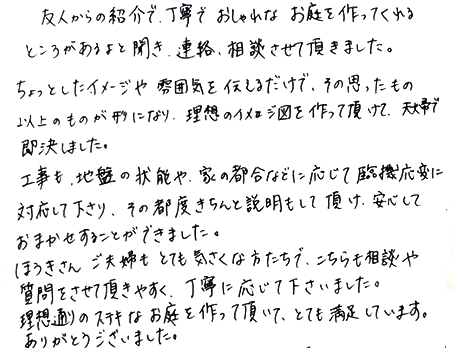 友人からの紹介で、丁寧でおしゃれな お庭を作ってくれる
ところがあるよと聞き、連絡、相談させて頂きました。
ちょっとしたイメージや 雰囲気を伝えるだけで、その思ったもの
以上のものが形になり、理想のイメージ図を作って頂けて、夫婦で
即決しました。
工事も、地盤の状態や、家の都合などに応じて臨機応変に
対応して下さり、その都度きちんと説明もして頂け、安心して
おまかせすることができました。
ほうきさん ご夫婦も とても気さくな方たちで、こちらも相談や
質問をさせて頂きやすく、丁寧に応じて下さいました。
理想通りのステキなお庭を作って頂いて、とても満足しています。
ありがとうございました。